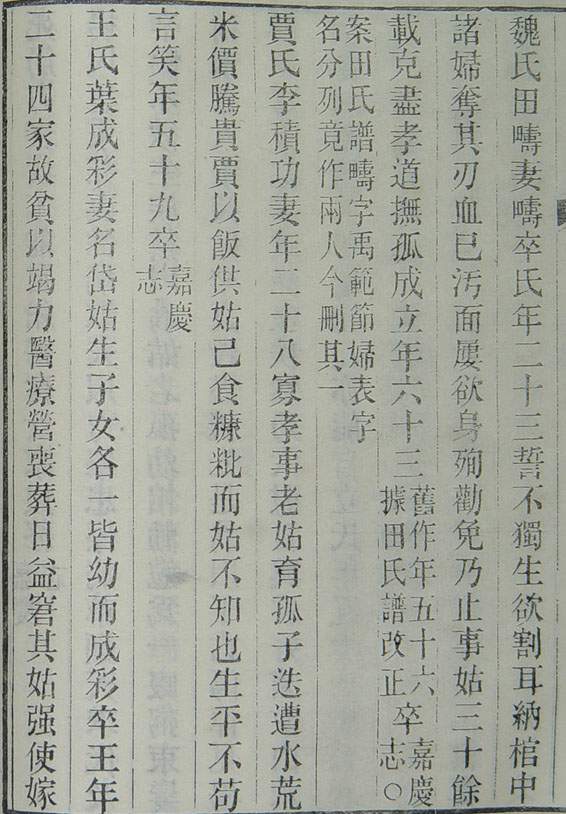 魏氏田疇妻疇卒氏年二十三誓不獨生欲割耳納棺中
諸婦奪其刃血已汚面屢欲身殉勸免乃止事姑三十餘
載克盡孝道撫孤成立年六十三舊作年五十六據田氏譜改正卒嘉慶志○
案田氏譜疇字禹範節婦表字
名分列竟作兩人今刪其一
賈氏李積功妻年二十八寡孝事老姑育孤子迭遭水荒
米價騰貴賈以飯供姑己食糠粃而姑不知也生平不苟
言笑年五十九卒嘉慶志
王氏葉成彩妻名岱姑生子女各一皆幼而成彩卒王年
二十四家故貧以竭力醫療營喪葬日益窘其姑强使嫁